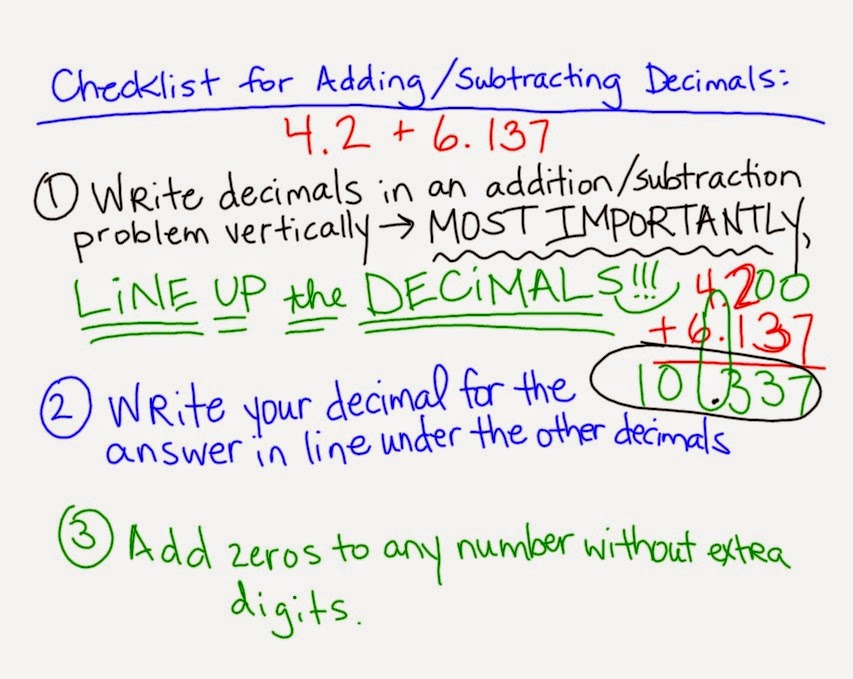 Checklist for Adding/Subtracting Decimals:
4.2 + 6.137
① Write decimals in an addition/subtraction
problem vertically → MOST IMPORTANTLY,
LINE UP the DECIMALS!!!
4.200
+ 6.137
10.337
② Write your decimal for the
answer in line under the other decimals
③ Add zeros to any number without extra
digits.